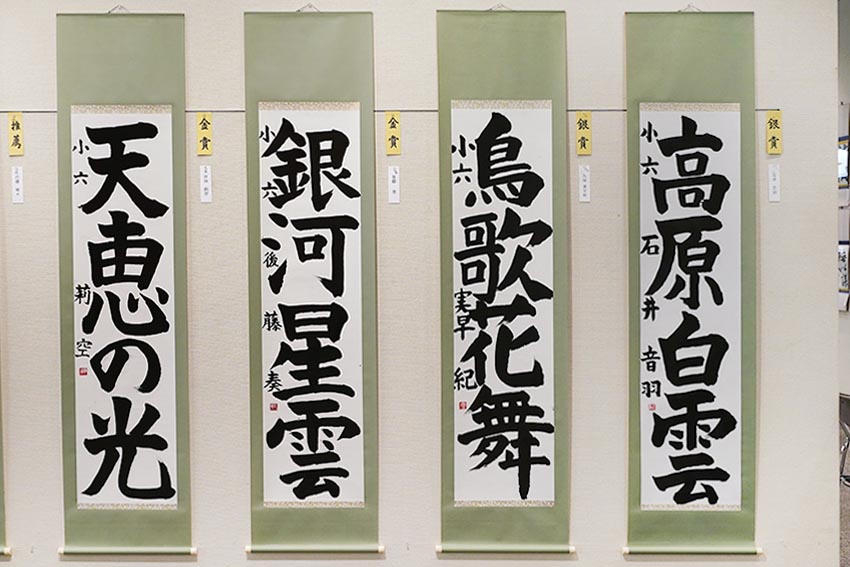 高原白雲
小六 石井音羽
銀賞
鳥歌花舞
小六 実早紀
銀賞
銀河星雲
小六 後藤奏
金賞
天恵の光
小六 莉空
金賞
推薦